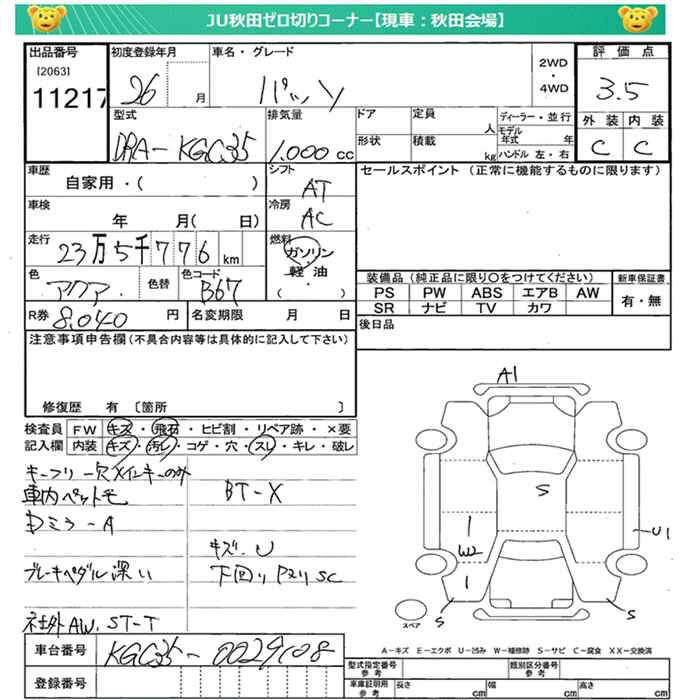 JU秋田ゼロ切りコーナー【現車：秋田会場】
出品番号 初度登録年月 車名・グレード 2WD ・ 4WD 評価点
[2063]
11217 26 月 パッソ 3.5
型式 排気量 ドア 定員 人 ディーラー・並行 外装 内装
DBA-KGC35 1,000 cc 形状 積載 kg モデル年式 年 ハンドル 左・右 C C
車歴 シフト セールスポイント（正常に機能するものに限ります）
自家用・（ ） AT
車検 冷房
年 月（ 日） AC
走行 燃料
23万5千776km ガソリン
軽油
（ ）
色 色替 色コード 装備品（純正品に限り○をつけてください） 新車保証書
アクア B67 PS PW ABS エアB AW 有・無
SR ナビ TV カワ
R券 8,040 円 名変期限 月 日 後日品
注意事項申告欄（不具合内容等は具体的に記入して下さい）
修復歴 有 〔箇所 〕
検査員記入欄 FW キズ・飛石・ヒビ割・リペア跡・×要
内装 キズ・汚レ・コゲ・穴・スレ・キレ・破レ
キーフリー欠メインキーのみ
車内ペット毛 BT-X
ドミラ-A
キズ.U
ブレーキペダル深い 下回りPヌリSC
社外AW. ST-T
A1
S
1
W2
1
U1
S
S
スペア
A－キズ E－エクボ U－凹み W－補修跡 S－サビ C－腐食 XX－交換済
車台番号 KGC35-0029108
登録番号
型式指定番号 参考 類別区分番号 参考
車庫証明用 参考 長さ cm 幅 cm 高さ cm